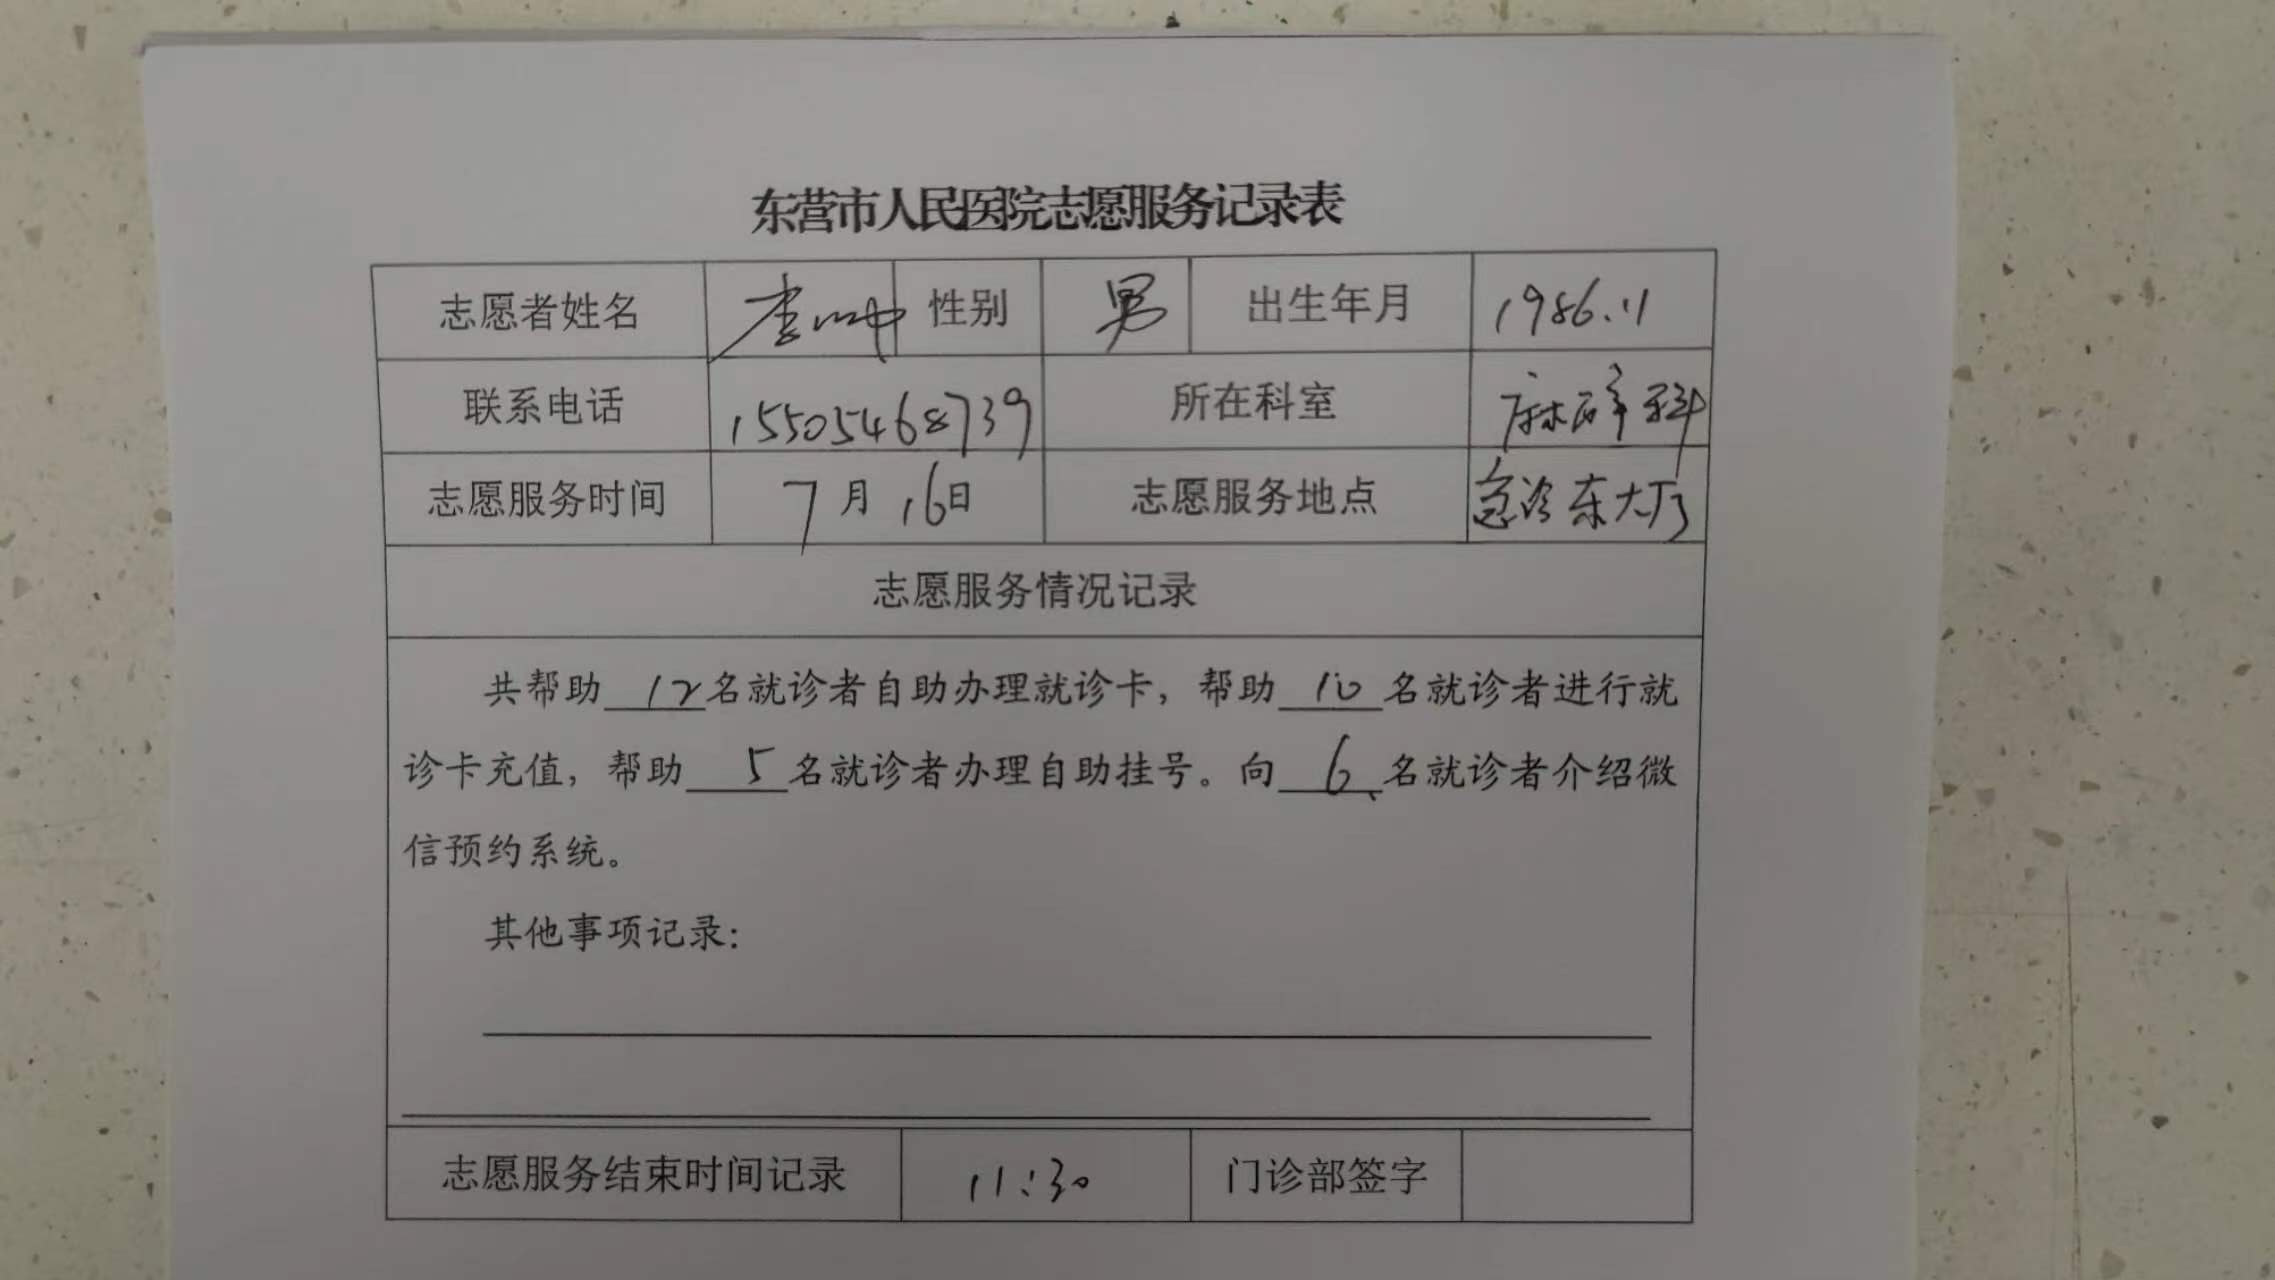 东营市人民医院志愿服务记录表
志愿者姓名 李 性别 男 出生年月 1986.11
联系电话 15505468739 所在科室 麻醉科
志愿服务时间 7月16日 志愿服务地点 急诊东大厅
志愿服务情况记录
共帮助 12 名就诊者自助办理就诊卡，帮助 10 名就诊者进行就
诊卡充值，帮助 5 名就诊者办理自助挂号。向 6、名就诊者介绍微
信预约系统。
其他事项记录：
志愿服务结束时间记录 11:30 门诊部签字